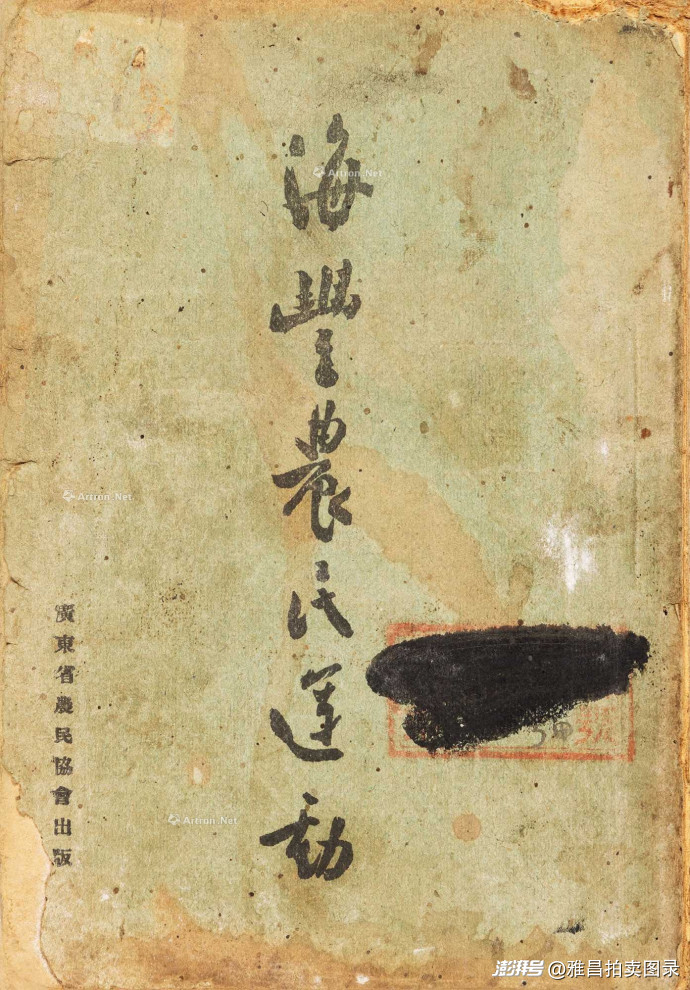 海豐農民运动
廣東省農民協會出版
Artron.Net
Artron.Net
Artron.Net
澎湃号@雅昌拍卖图录